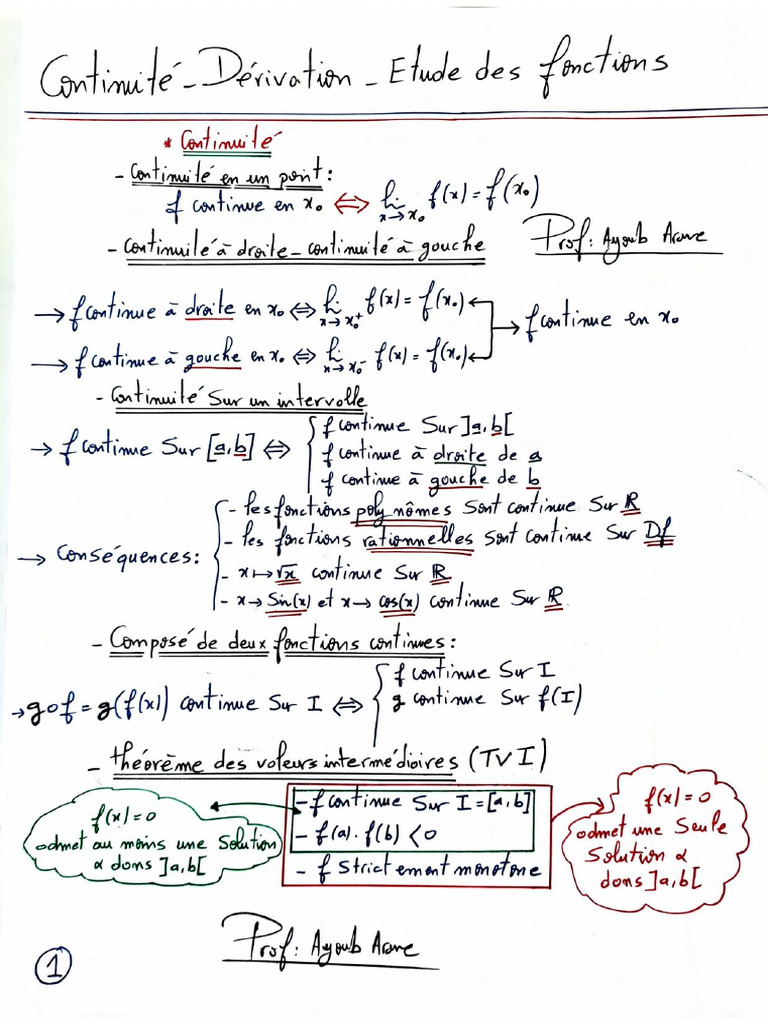 Continuité - Dérivation - Etude des fonctions
* Continuité
- Continuité en un point:
f continue en x₀ ⇔ lim x→x₀ f(x) = f(x₀)
Prof: Ayoub Arane
- Continuité à droite - continuité à gauche
→ f continue à droite en x₀ ⇔ lim x→x₀⁺ f(x) = f(x₀)
→ f continue en x₀
→ f continue à gauche en x₀ ⇔ lim x→x₀⁻ f(x) = f(x₀)
- Continuité Sur un intervalle
→ f continue Sur [a,b] ⇔ { f continue Sur ]a,b[
f continue à droite de a
f continue à gauche de b
→ Conséquences: { - les fonctions polynômes sont continue Sur ℝ
- les fonctions rationnelles sont continue Sur Df
- x ↦ √x continue Sur ℝ
- x → Sin(x) et x → cos(x) continue Sur ℝ
- Composé de deux fonctions continues:
→ gof = g(f(x)) continue Sur I ⇔ { f continue Sur I
g continue Sur f(I)
- théorème des valeurs intermédiaires (TVI)
f(x) = 0
admet au moins une Solution
α dans ]a,b[
- f continue Sur I = [a,b]
- f(a) . f(b) < 0
- f strictement monotone
f(x) = 0
admet une Seule
Solution α
dans ]a,b[
Prof: Ayoub Arane
1